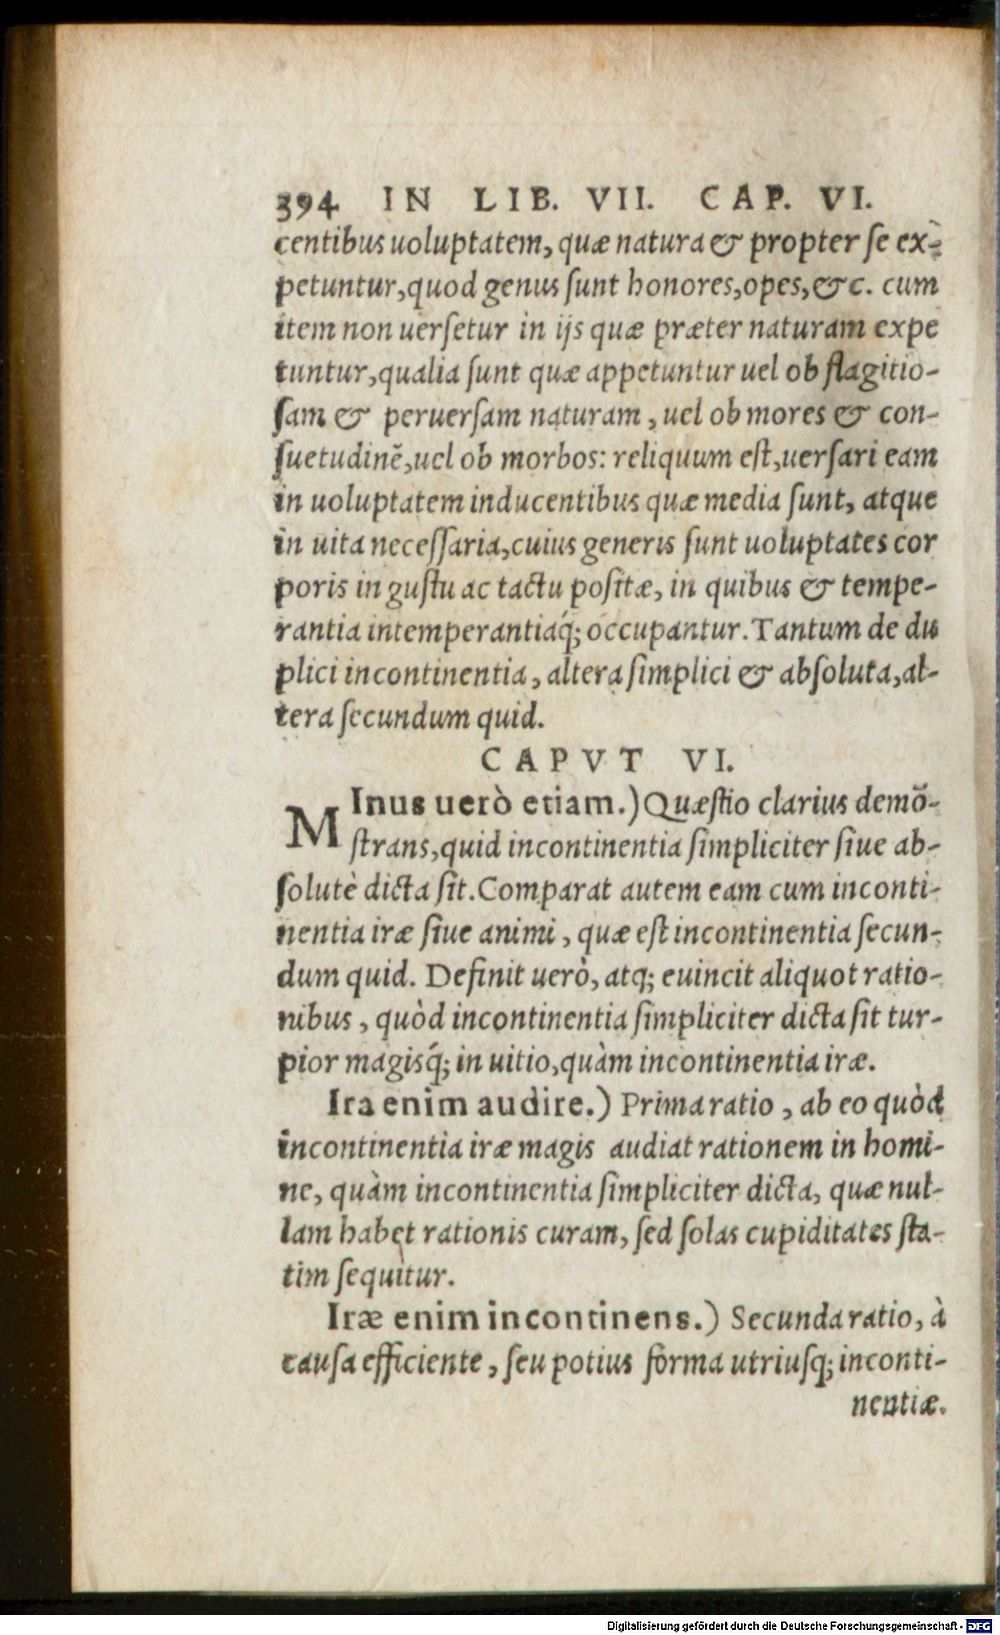 394 IN LIB. VII. CAP. VI.
centibus uoluptatem, quæ natura & propter se ex-
petuntur, quod genus sunt honores, opes, &c. cum
item non uersetur in ijs quæ præter naturam expe
tuntur, qualia sunt quæ appetuntur uel ob flagitio-
sam & peruersam naturam, uel ob mores & con-
suetudinẽ, uel ob morbos: reliquum est, uersari eam
in uoluptatem inducentibus quæ media sunt, atque
in uita necessaria, cuius generis sunt uoluptates cor
poris in gustu ac tactu positæ, in quibus & tempe-
rantia intemperantiaq́; occupantur. Tantum de du
plici incontinentia, altera simplici & absoluta, al-
tera secundum quid.
CAPVT VI.
MInus uerò etiam.) Quæstio clarius demõ-
strans, quid incontinentia simpliciter siue ab-
solutè dicta sit. Comparat autem eam cum inconti-
nentia iræ siue animi, quæ est incontinentia secun-
dum quid. Definit uerò, atq; euincit aliquot ratio-
nibus, quòd incontinentia simpliciter dicta sit tur-
pior magisq́; in uitio, quàm incontinentia iræ.
Ira enim audire.) Prima ratio, ab eo quòd
incontinentia iræ magis audiat rationem in homi-
ne, quàm incontinentia simpliciter dicta, quæ nul-
lam habet rationis curam, sed solas cupiditates sta-
tim sequitur.
Iræ enim incontinens.) Secunda ratio, à
causa efficiente, seu potius forma utriusq; inconti-
nentiæ.
Digitalisierung gefördert durch die Deutsche Forschungsgemeinschaft - DFG